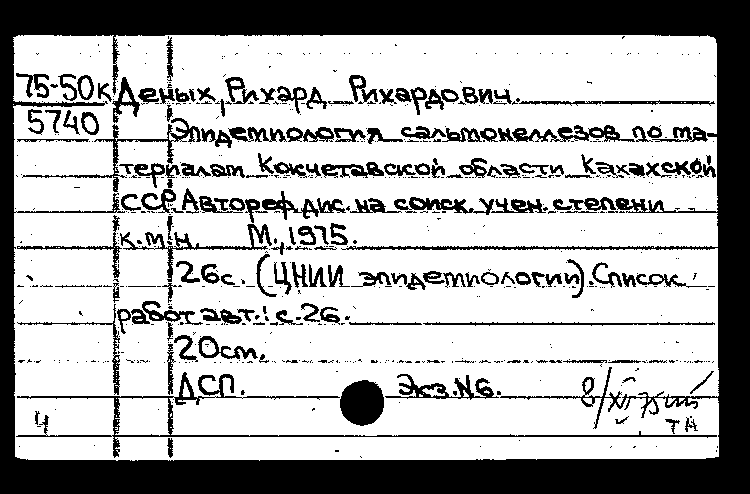 75-50к Деных, Рихард Рихардович.
5740 Эпидемиология сальмонеллезов по ма-
териалам Кокчетавской области Казахской
ССР Автореф. дис. на соиск. учен. степени
к.м.н. М., 1975.
26с. (ЦНИИ эпидемиологии). Список
работ авт.: с. 26.
20cm.
ДСП. Экз. N6. 8/XII 75
4 ТА